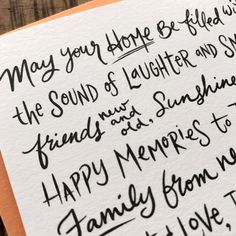 May your Home Be filled wi
the Sound of Laughter and S
friends new and old, Sunshine
Happy Memories to
Family from ne
Love,